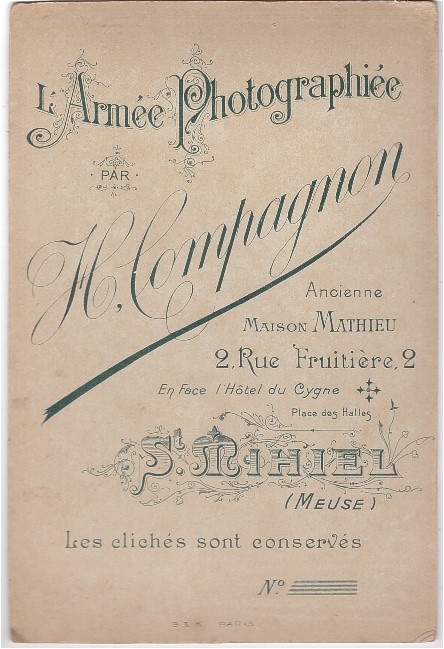 L'Armée Photographiée
PAR
H. Compagnon
Ancienne
MAISON MATHIEU
2, Rue Fruitière, 2
En Face l'Hôtel du Cygne
Place des Halles
St. MIHIEL
(MEUSE)
Les clichés sont conservés
No.
PARIS